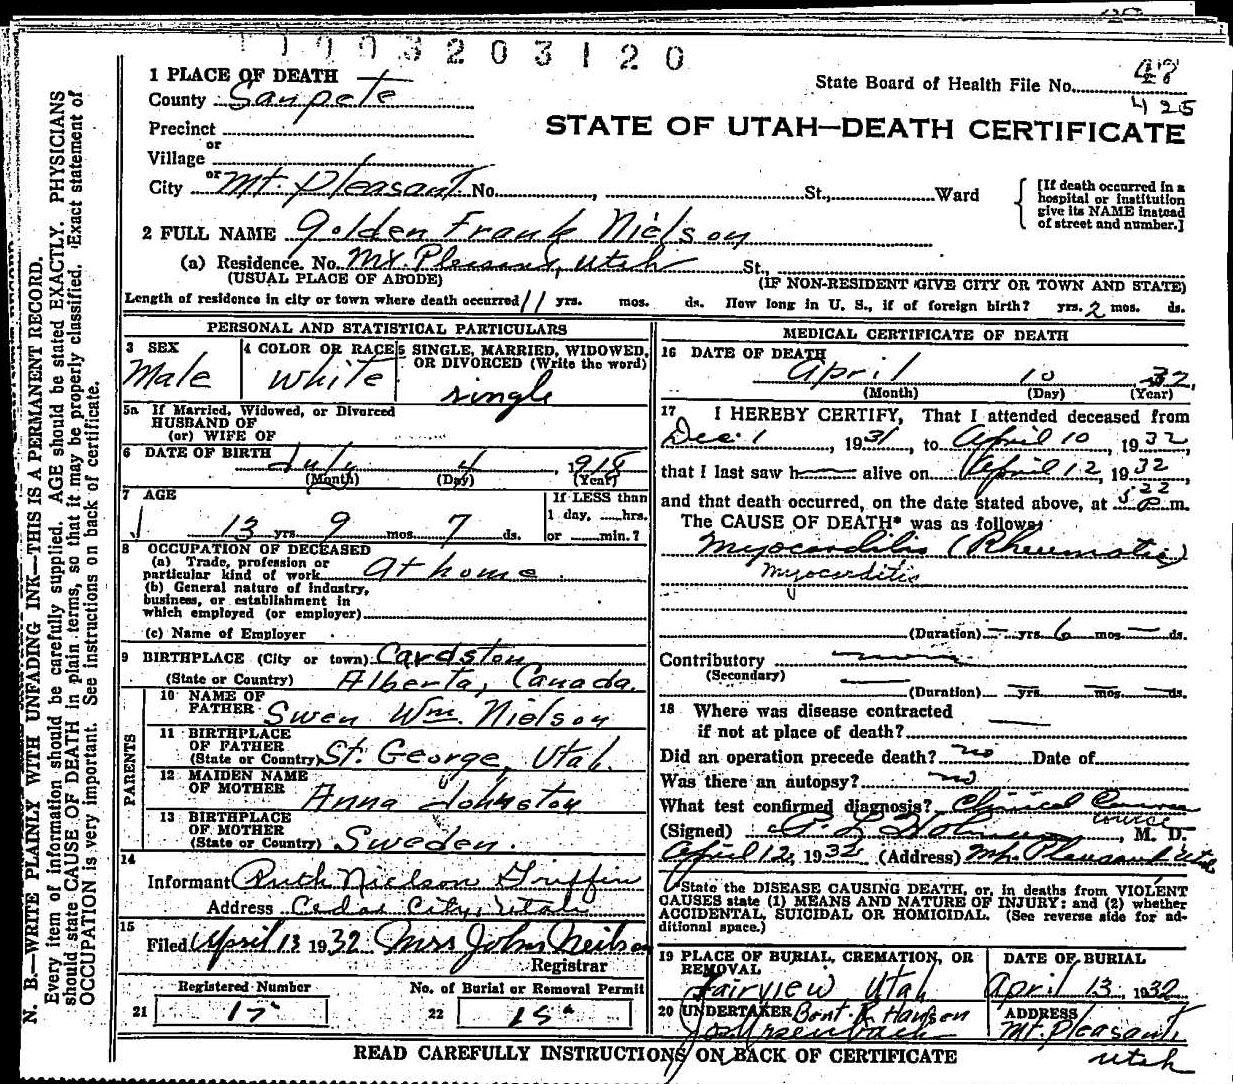 1003203120
1 PLACE OF DEATH
County Sanpete
State Board of Health File No. 48
425
Precinct
or
Village
or
City Mt. Pleasant No. , St., Ward
STATE OF UTAH—DEATH CERTIFICATE
[If death occurred in a
hospital or institution
give its NAME instead
of street and number.]
2 FULL NAME Golden Frank Nielson
(a) Residence. No. Mt. Pleasant, Utah St.,
(USUAL PLACE OF ABODE) (IF NON-RESIDENT GIVE CITY OR TOWN AND STATE)
Length of residence in city or town where death occurred 11 yrs. mos. ds. How long in U. S., if of foreign birth? yrs. 2 mos. ds.
PERSONAL AND STATISTICAL PARTICULARS
3 SEX
Male
4 COLOR OR RACE
White
5 SINGLE, MARRIED, WIDOWED,
OR DIVORCED (Write the word)
single
5a If Married, Widowed, or Divorced
HUSBAND OF
(or) WIFE OF
6 DATE OF BIRTH
July 4, 1918
(Month) (Day) (Year)
7 AGE
13 yrs. 9 mos. 7 ds.
If LESS than
1 day, hrs.
or min.?
8 OCCUPATION OF DECEASED
(a) Trade, profession or
particular kind of work At home
(b) General nature of industry,
business, or establishment in
which employed (or employer)
(c) Name of Employer
9 BIRTHPLACE (City or town) Cardston
(State or Country) Alberta, Canada.
PARENTS
10 NAME OF
FATHER Swen Wm. Nielson
11 BIRTHPLACE
OF FATHER
(State or Country) St. George, Utah.
12 MAIDEN NAME
OF MOTHER Anna Johnston
13 BIRTHPLACE
OF MOTHER
(State or Country) Sweden.
14
Informant Ruth Nielson Griffin
Address Cedar City, Utah
15
Filed April 13 1932 Mrs John Neilson
Registrar
Registered Number
21 15
No. of Burial or Removal Permit
22 15a
MEDICAL CERTIFICATE OF DEATH
16 DATE OF DEATH
April 10 32
(Month) (Day) (Year)
17 I HEREBY CERTIFY, That I attended deceased from
Dec. 1, 1931, to April 10, 1932
that I last saw h alive on April 12, 1932
and that death occurred, on the date stated above, at 5 22 p. m.
The CAUSE OF DEATH* was as follows:
Myocarditis (Rheumatic)
myocarditis
(Duration) — yrs. 6 mos. — ds.
Contributory
(Secondary)
(Duration) — yrs. — mos. — ds.
18 Where was disease contracted
if not at place of death?
Did an operation precede death? no Date of
Was there an autopsy? no
What test confirmed diagnosis? Clinical Course
course
(Signed) , M. D.
April 12, 1932 (Address) Mt. Pleasant Utah
*State the DISEASE CAUSING DEATH, or, in deaths from VIOLENT
CAUSES state (1) MEANS AND NATURE OF INJURY; and (2) whether
ACCIDENTAL, SUICIDAL OR HOMICIDAL. (See reverse side for ad-
ditional space.)
19 PLACE OF BURIAL, CREMATION, OR
REMOVAL
Fairview Utah
DATE OF BURIAL
April 13, 1932
20 UNDERTAKER Bent. R. Hansen
ADDRESS
Mt. Pleasant
Utah
READ CAREFULLY INSTRUCTIONS ON BACK OF CERTIFICATE
N. B.—WRITE PLAINLY WITH UNFADING INK—THIS IS A PERMANENT RECORD.
Every item of information should be carefully supplied. AGE should be stated EXACTLY. PHYSICIANS
should state CAUSE OF DEATH in plain terms, so that it may be properly classified. Exact statement of
OCCUPATION is very important. See instructions on back of certificate.